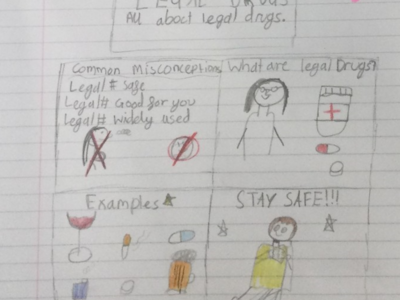 LEGAL DRUGS
All about legal drugs.
Common misconceptions
Legal ≠ Safe
Legal ≠ Good for you
Legal ≠ Widely used
What are legal Drugs?
Examples
STAY SAFE!!!